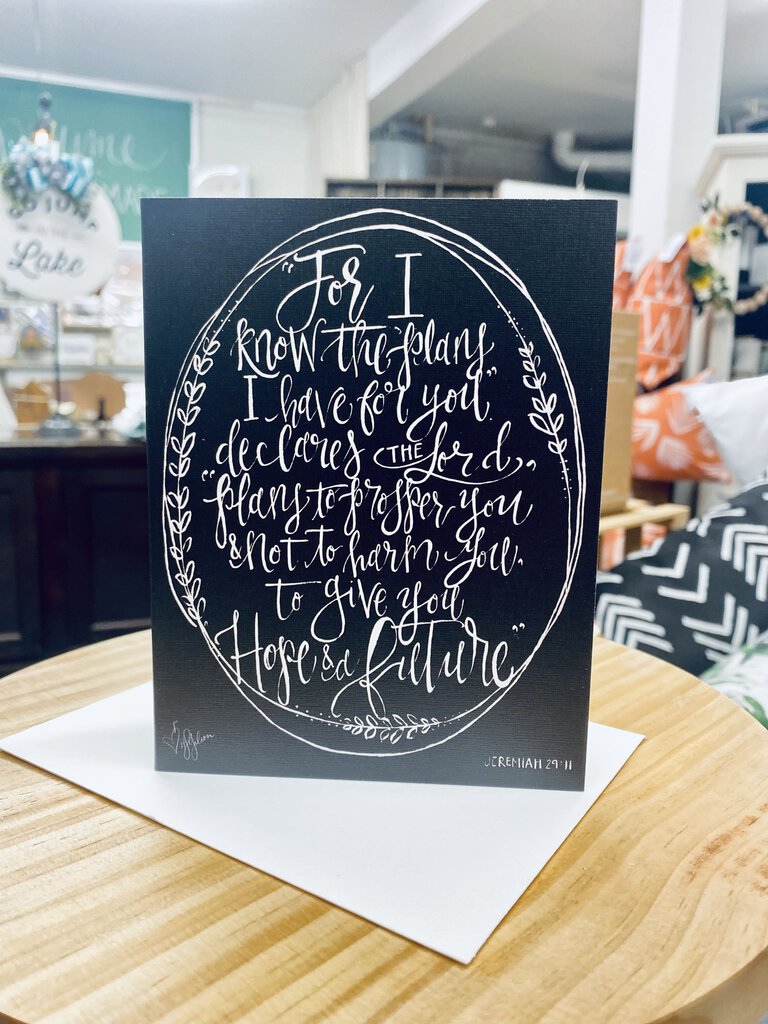 "For I
know the plans
I have for you"
declares THE Lord,
"plans to prosper you
& not to harm you,
to give you
Hope & a future"
JEREMIAH 29:11
Lake